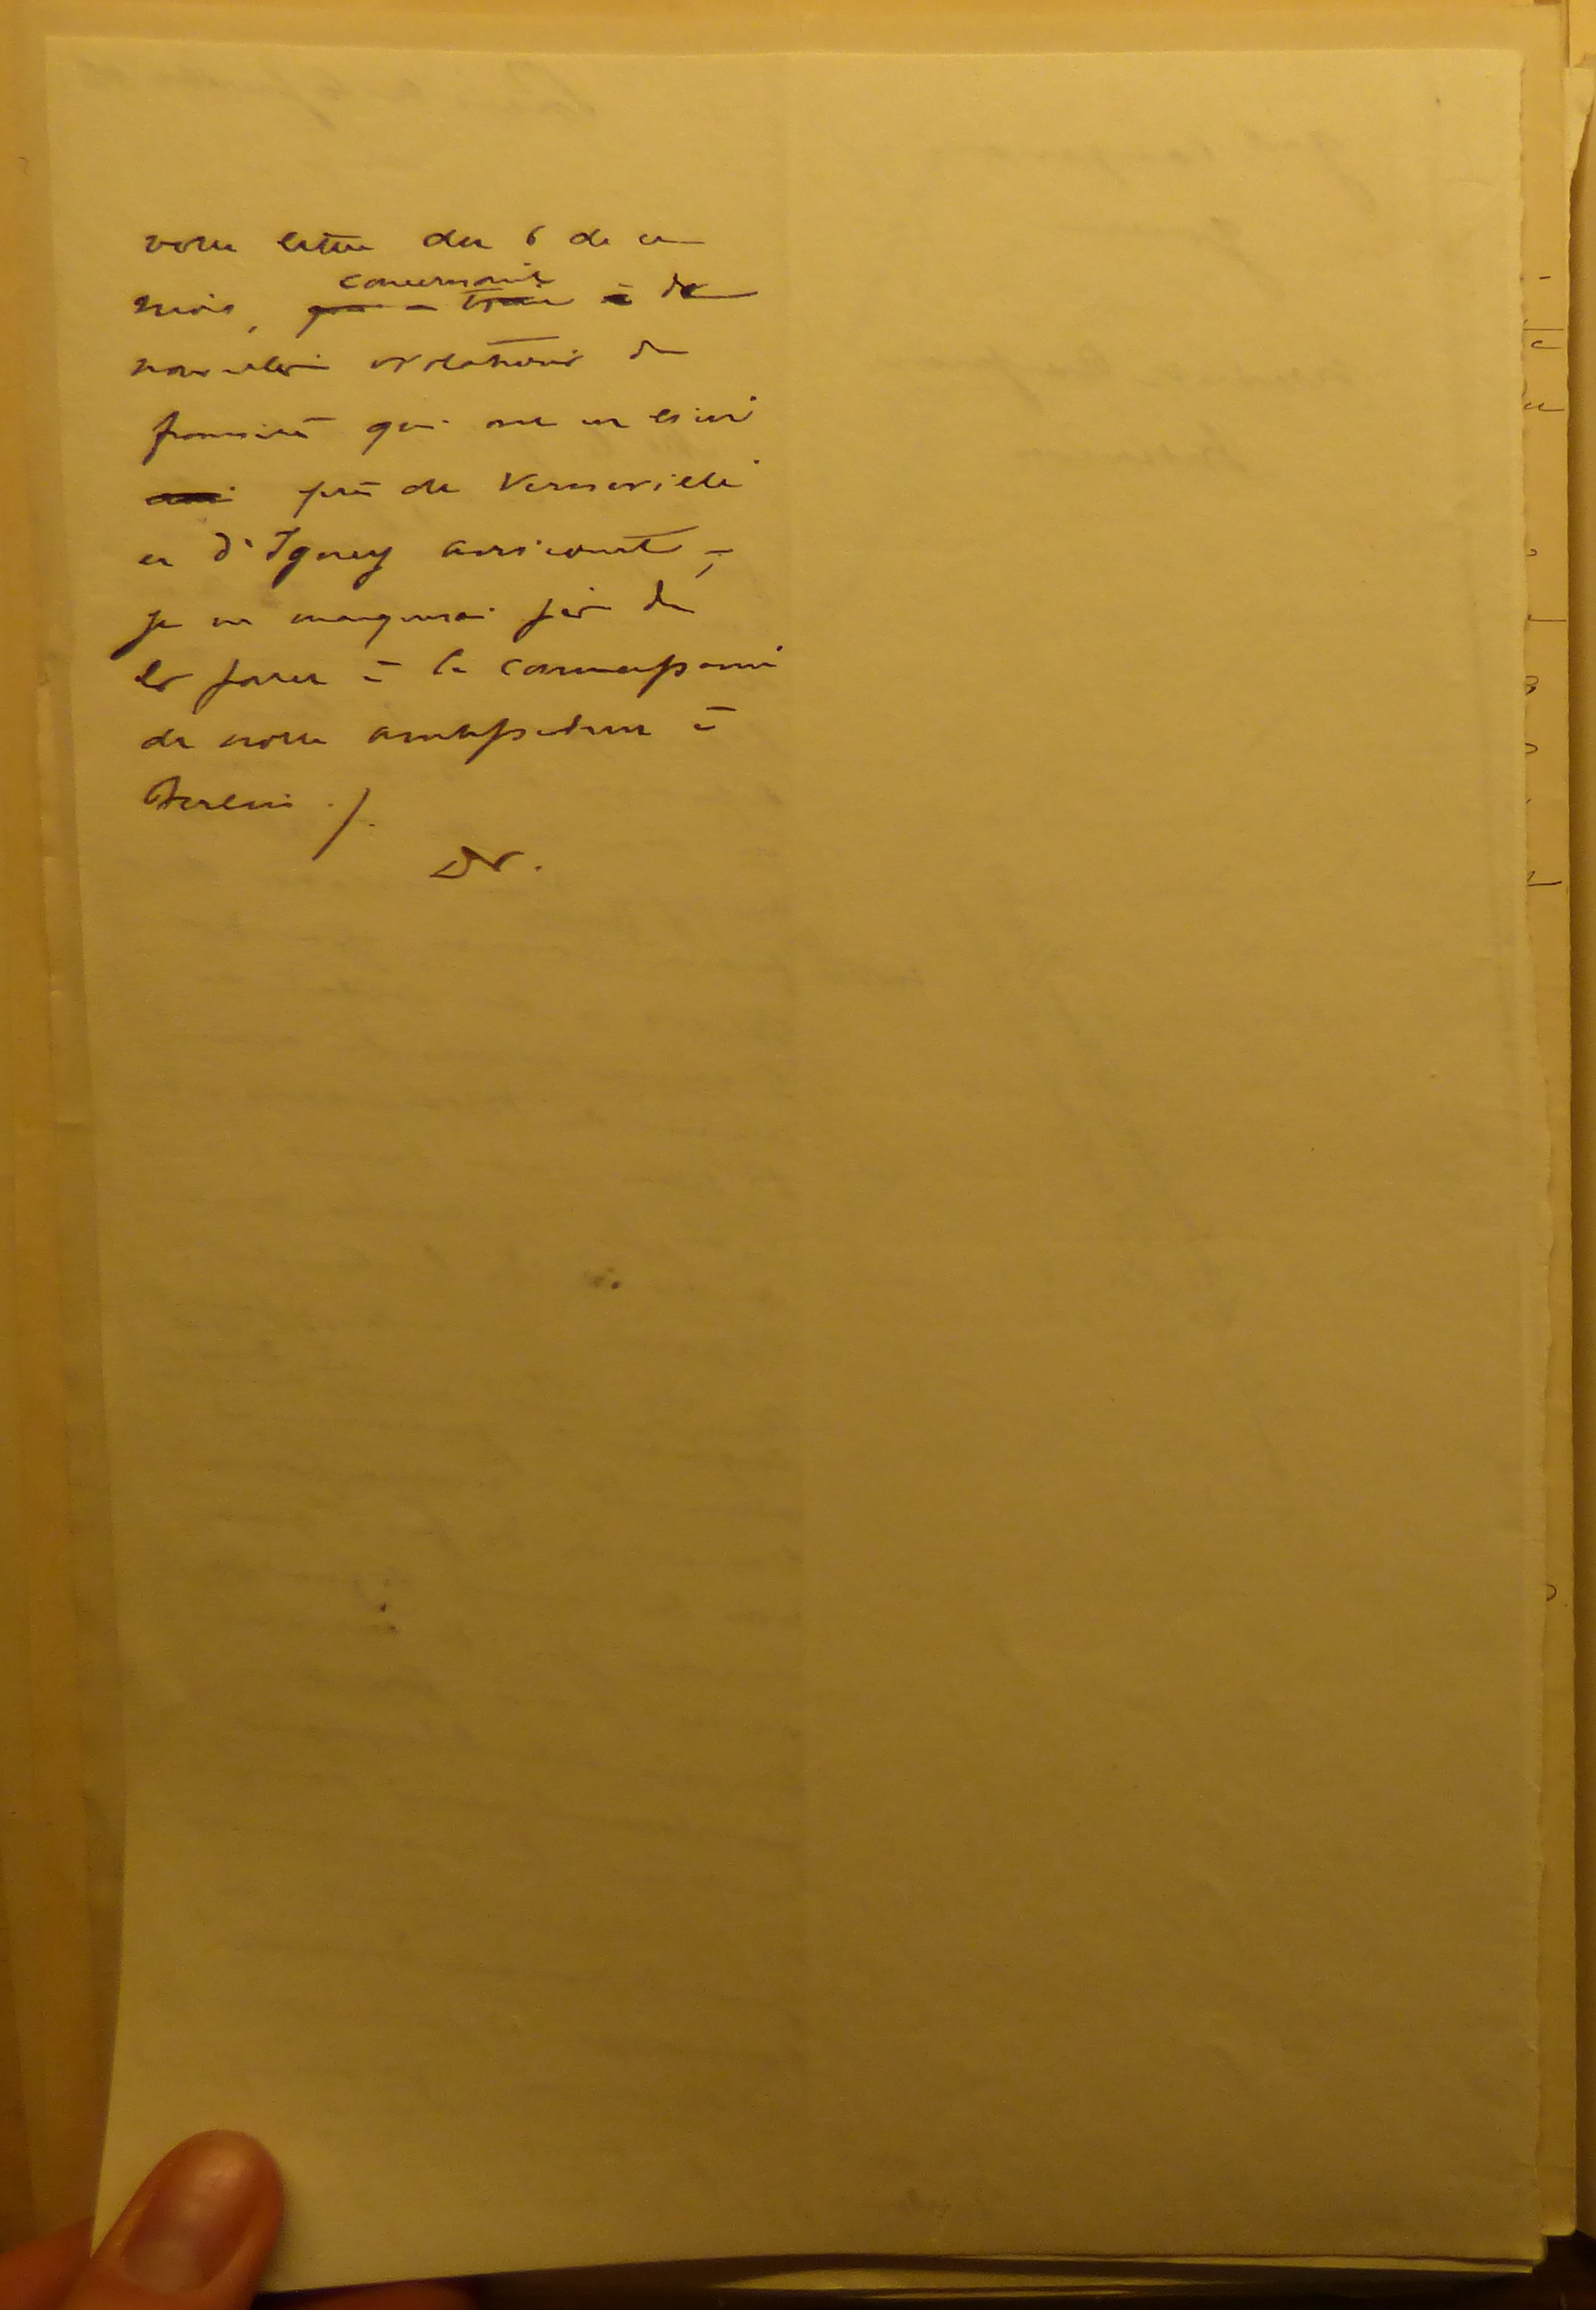 votre lettre du 6 de ce
concernant
mois, qui a trait à de
nouvelles violations de
frontière qui ont eu lieu
près de
et d'Igney Avricourt,
je ne manquerai pas de
les porter à la connaissance
de notre ambassadeur à
Berlin ./.